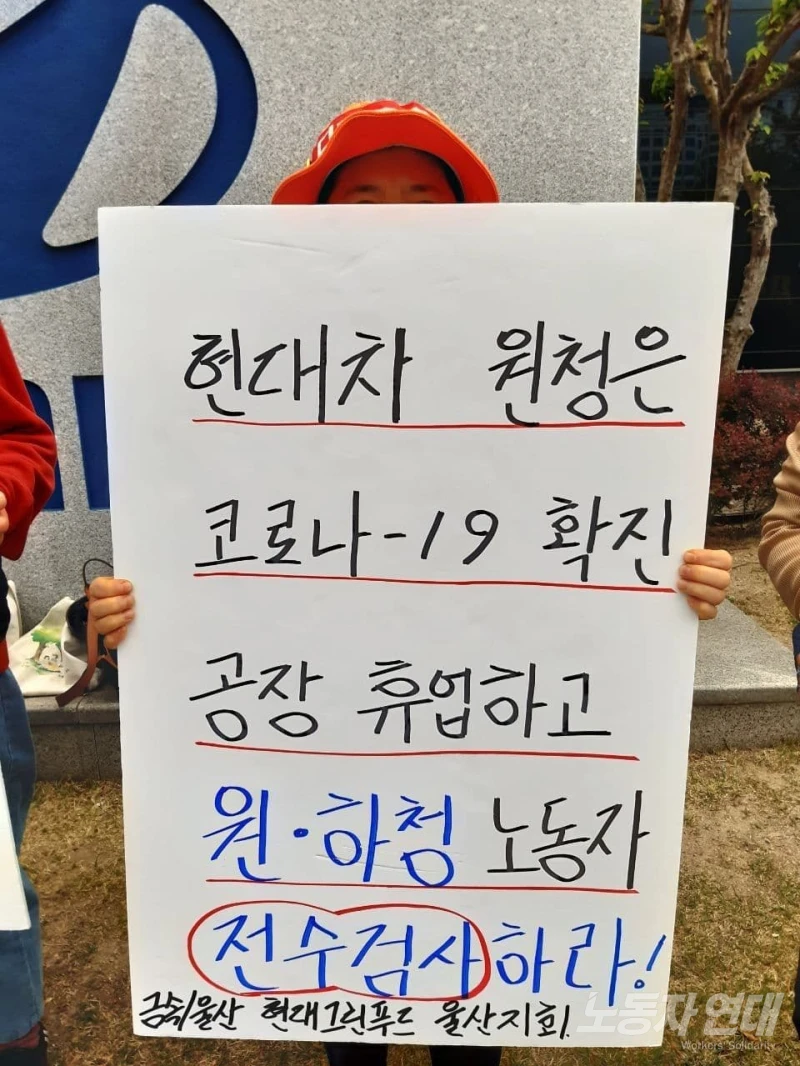 현대차 원청은
코로나-19 확진
공장 휴업하고
원·하청 노동자
전수검사하라!
금속/울산 현대그린푸드 울산지회.
노동자 연대
Workers' Solidarity